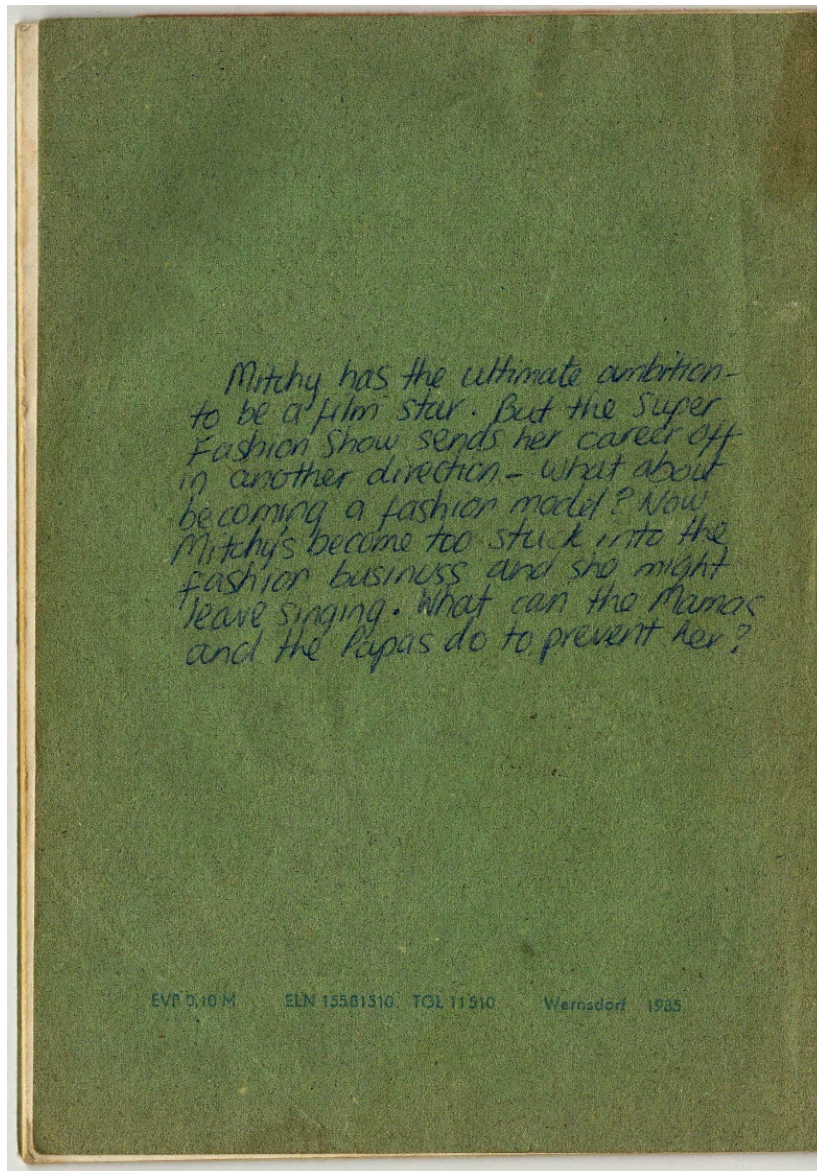 Mitchy has the ultimate ambition-
to be a film star. But the Super
Fashion Show sends her career off
in another direction - what about
becoming a fashion model? Now
Mitchy's become too stuck into the
fashion businuss and she might
leave singing. What can the Mamas
and the Papas do to prevent her?
EVP 0,10 M ELN 15581510 TGL 11510 Wernsdorf 1985